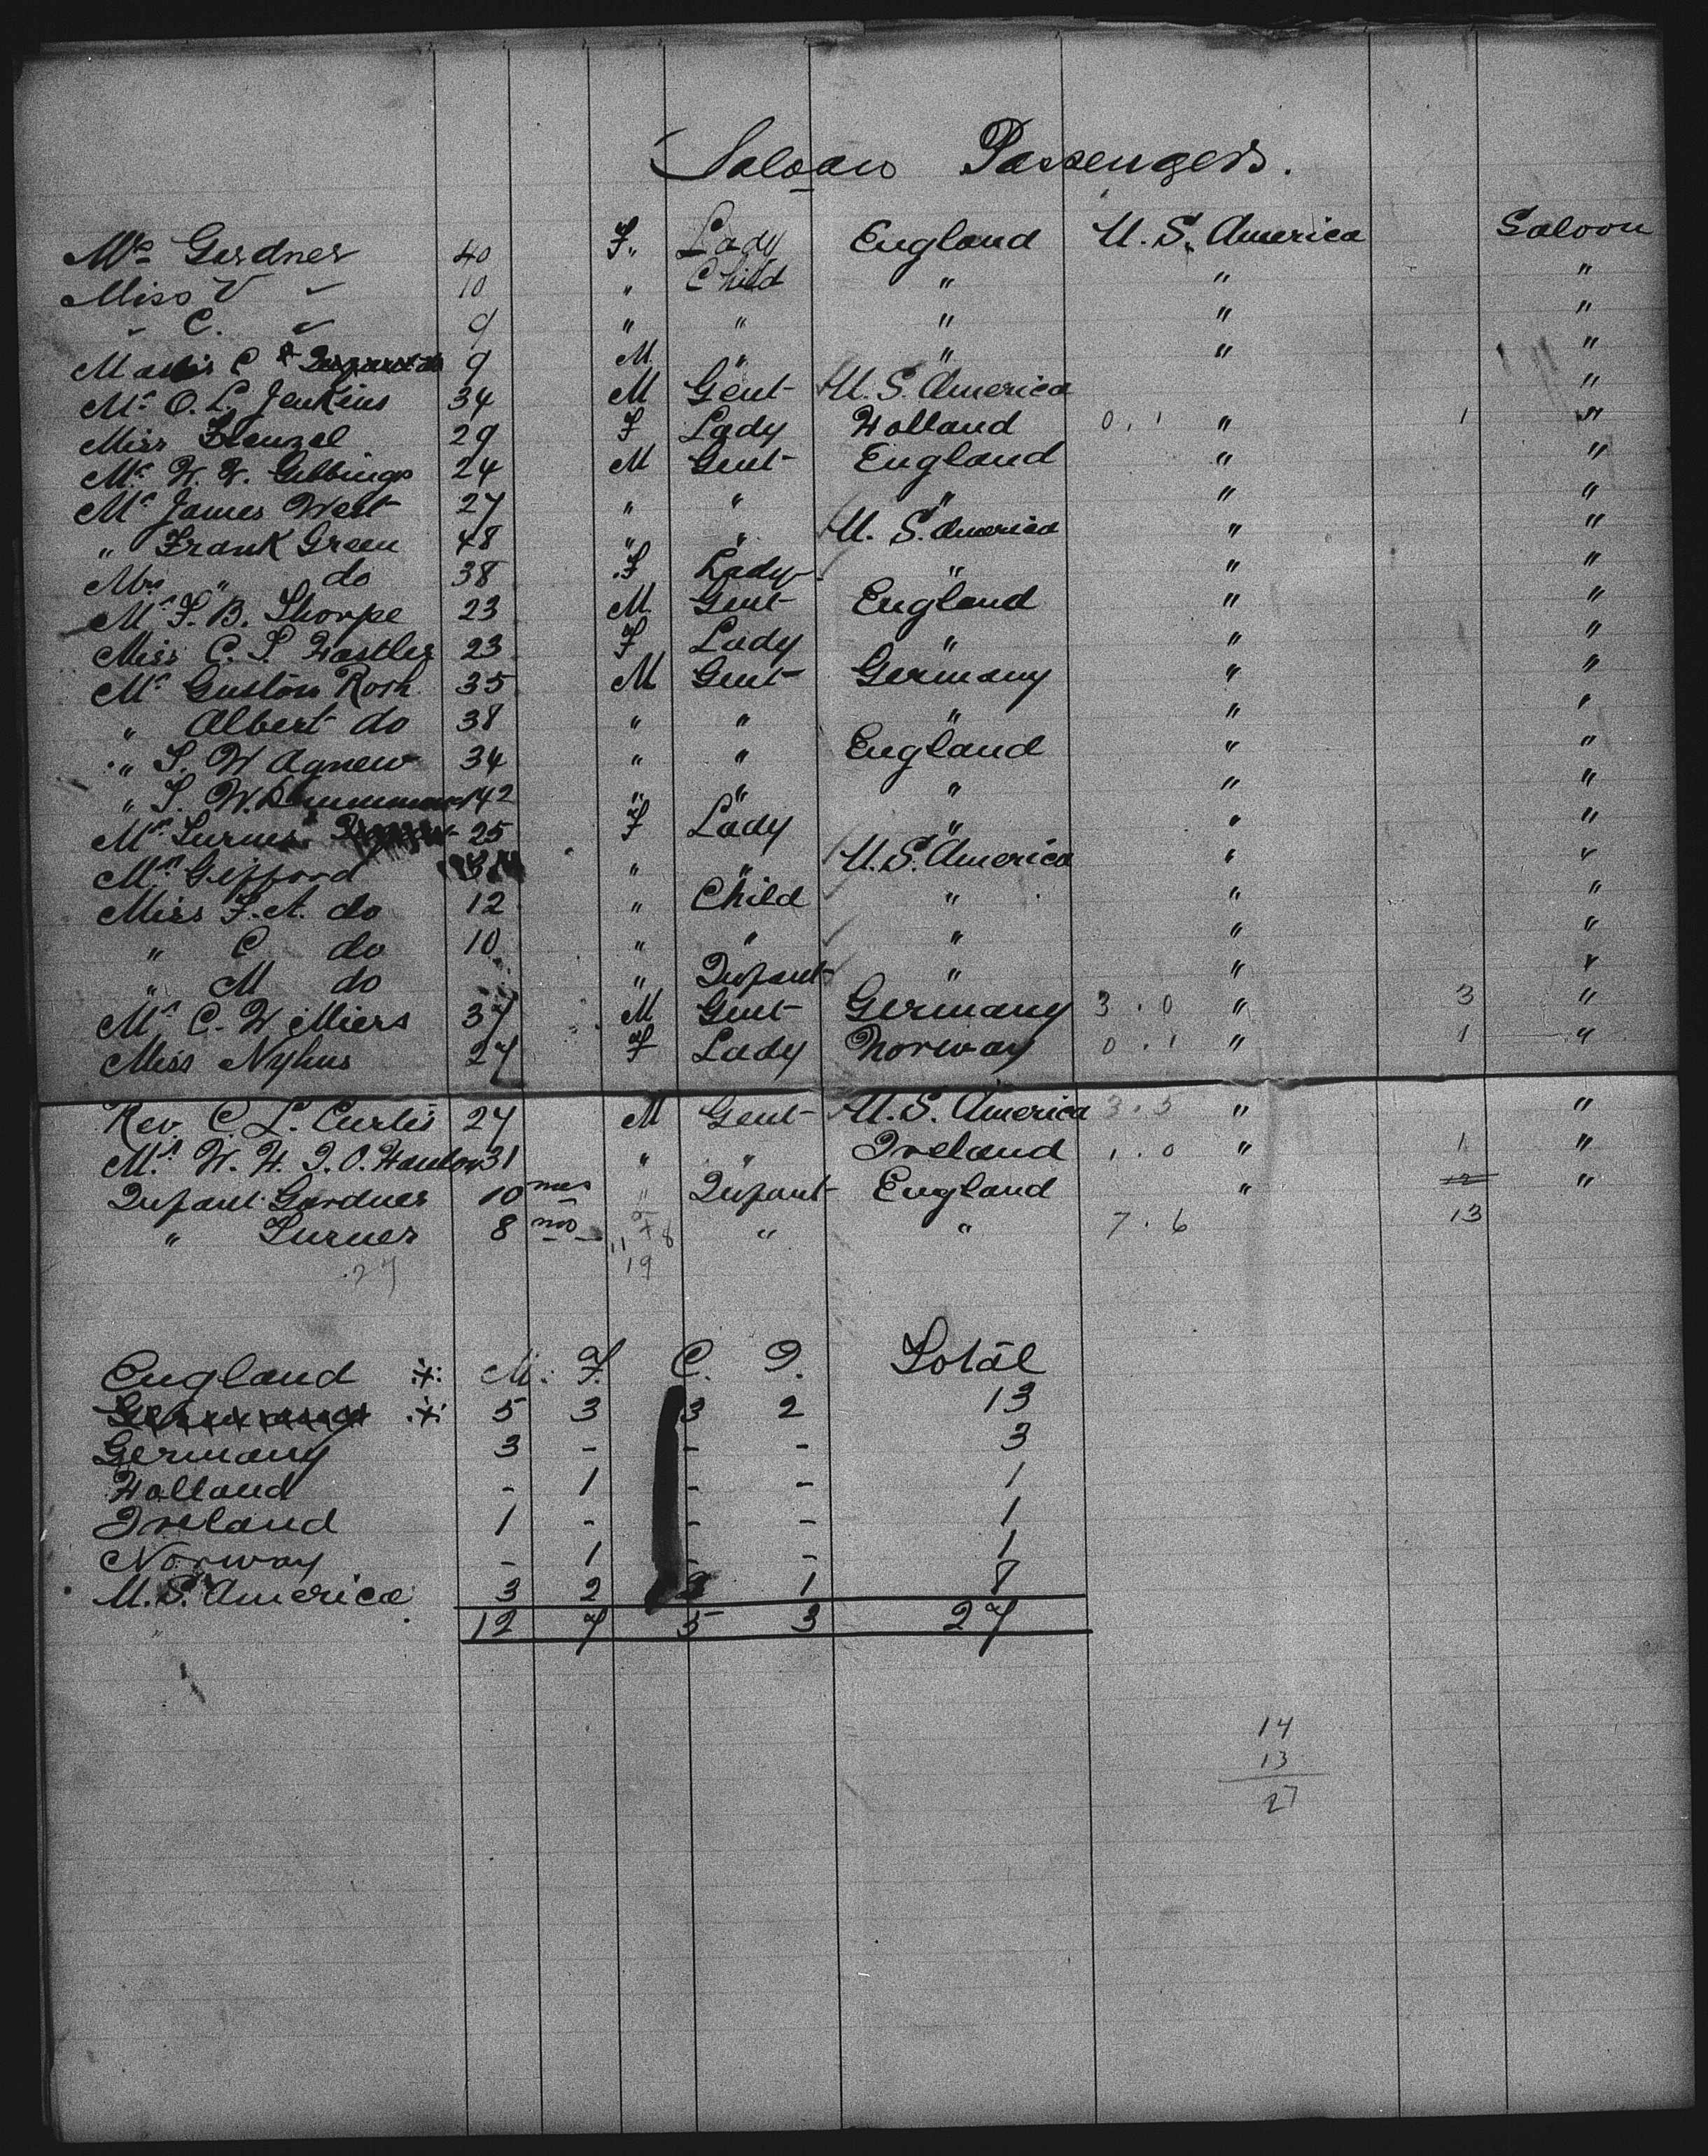 Saloon Passengers.
Mrs Gardner 40 F. Lady England U. S. America Saloon
Miss V " 10 " Child " " "
" C. " 9 " " " " "
C 9 M " " " "
Mr O. L. Jenkins 34 M Gent U. S. America "
Miss Frenzel 29 F Lady Holland 0.1 " 1 "
Mr W. W. Gibbings 24 M Gent England " "
Mr James West 27 " " " " "
" Frank Green 48 " " U. S. America " "
Mrs " do 38 F Lady " " "
Mr F. B. Thorpe 23 M Gent England " "
Miss C. S. 23 F Lady " " "
Mr Roth 35 M Gent Germany " "
" Albert do 38 " " " " "
" S. W Agnew 34 " " England " "
" S. W. 42 " " " " "
Mrs Turner 25 F Lady " " "
Mrs Gifford " " U. S. America " "
Miss F. A. do 12 " Child " " "
" C do 10 " " " " "
" M do " Infant " " "
Mr C. W Miers 37 M Gent Germany 3.0 " 3 "
Miss Nyhus 27 F Lady Norway 0.1 " 1 "
Rev. C. L. Curtis 27 M Gent U. S. America 3.5 " "
Mr W. H. I. O. Hanlon 31 " " Ireland 1.0 " 1 "
Infant Gardner 10 mos " Infant England " "
" Turner 8 mos " " 7.6 13
27 11 8
19
England M. F. C. I. Total
5 3 3 2 13
Germany 3 - - - 3
Holland - 1 - - 1
Ireland 1 - - - 1
Norway - 1 - - 1
U. S. America 3 2 2 1 8
12 7 5 3 27
14
13
27